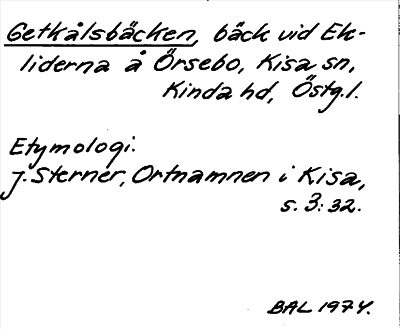 Getkålsbäcken, bäck vid Ek-
liderna å Örsebo, Kisa sn,
Kinda hd, Östg.l.
Etymologi.
J. Sterner, Ortnamnen i Kisa,
s. 3:32.
BAL 1974.